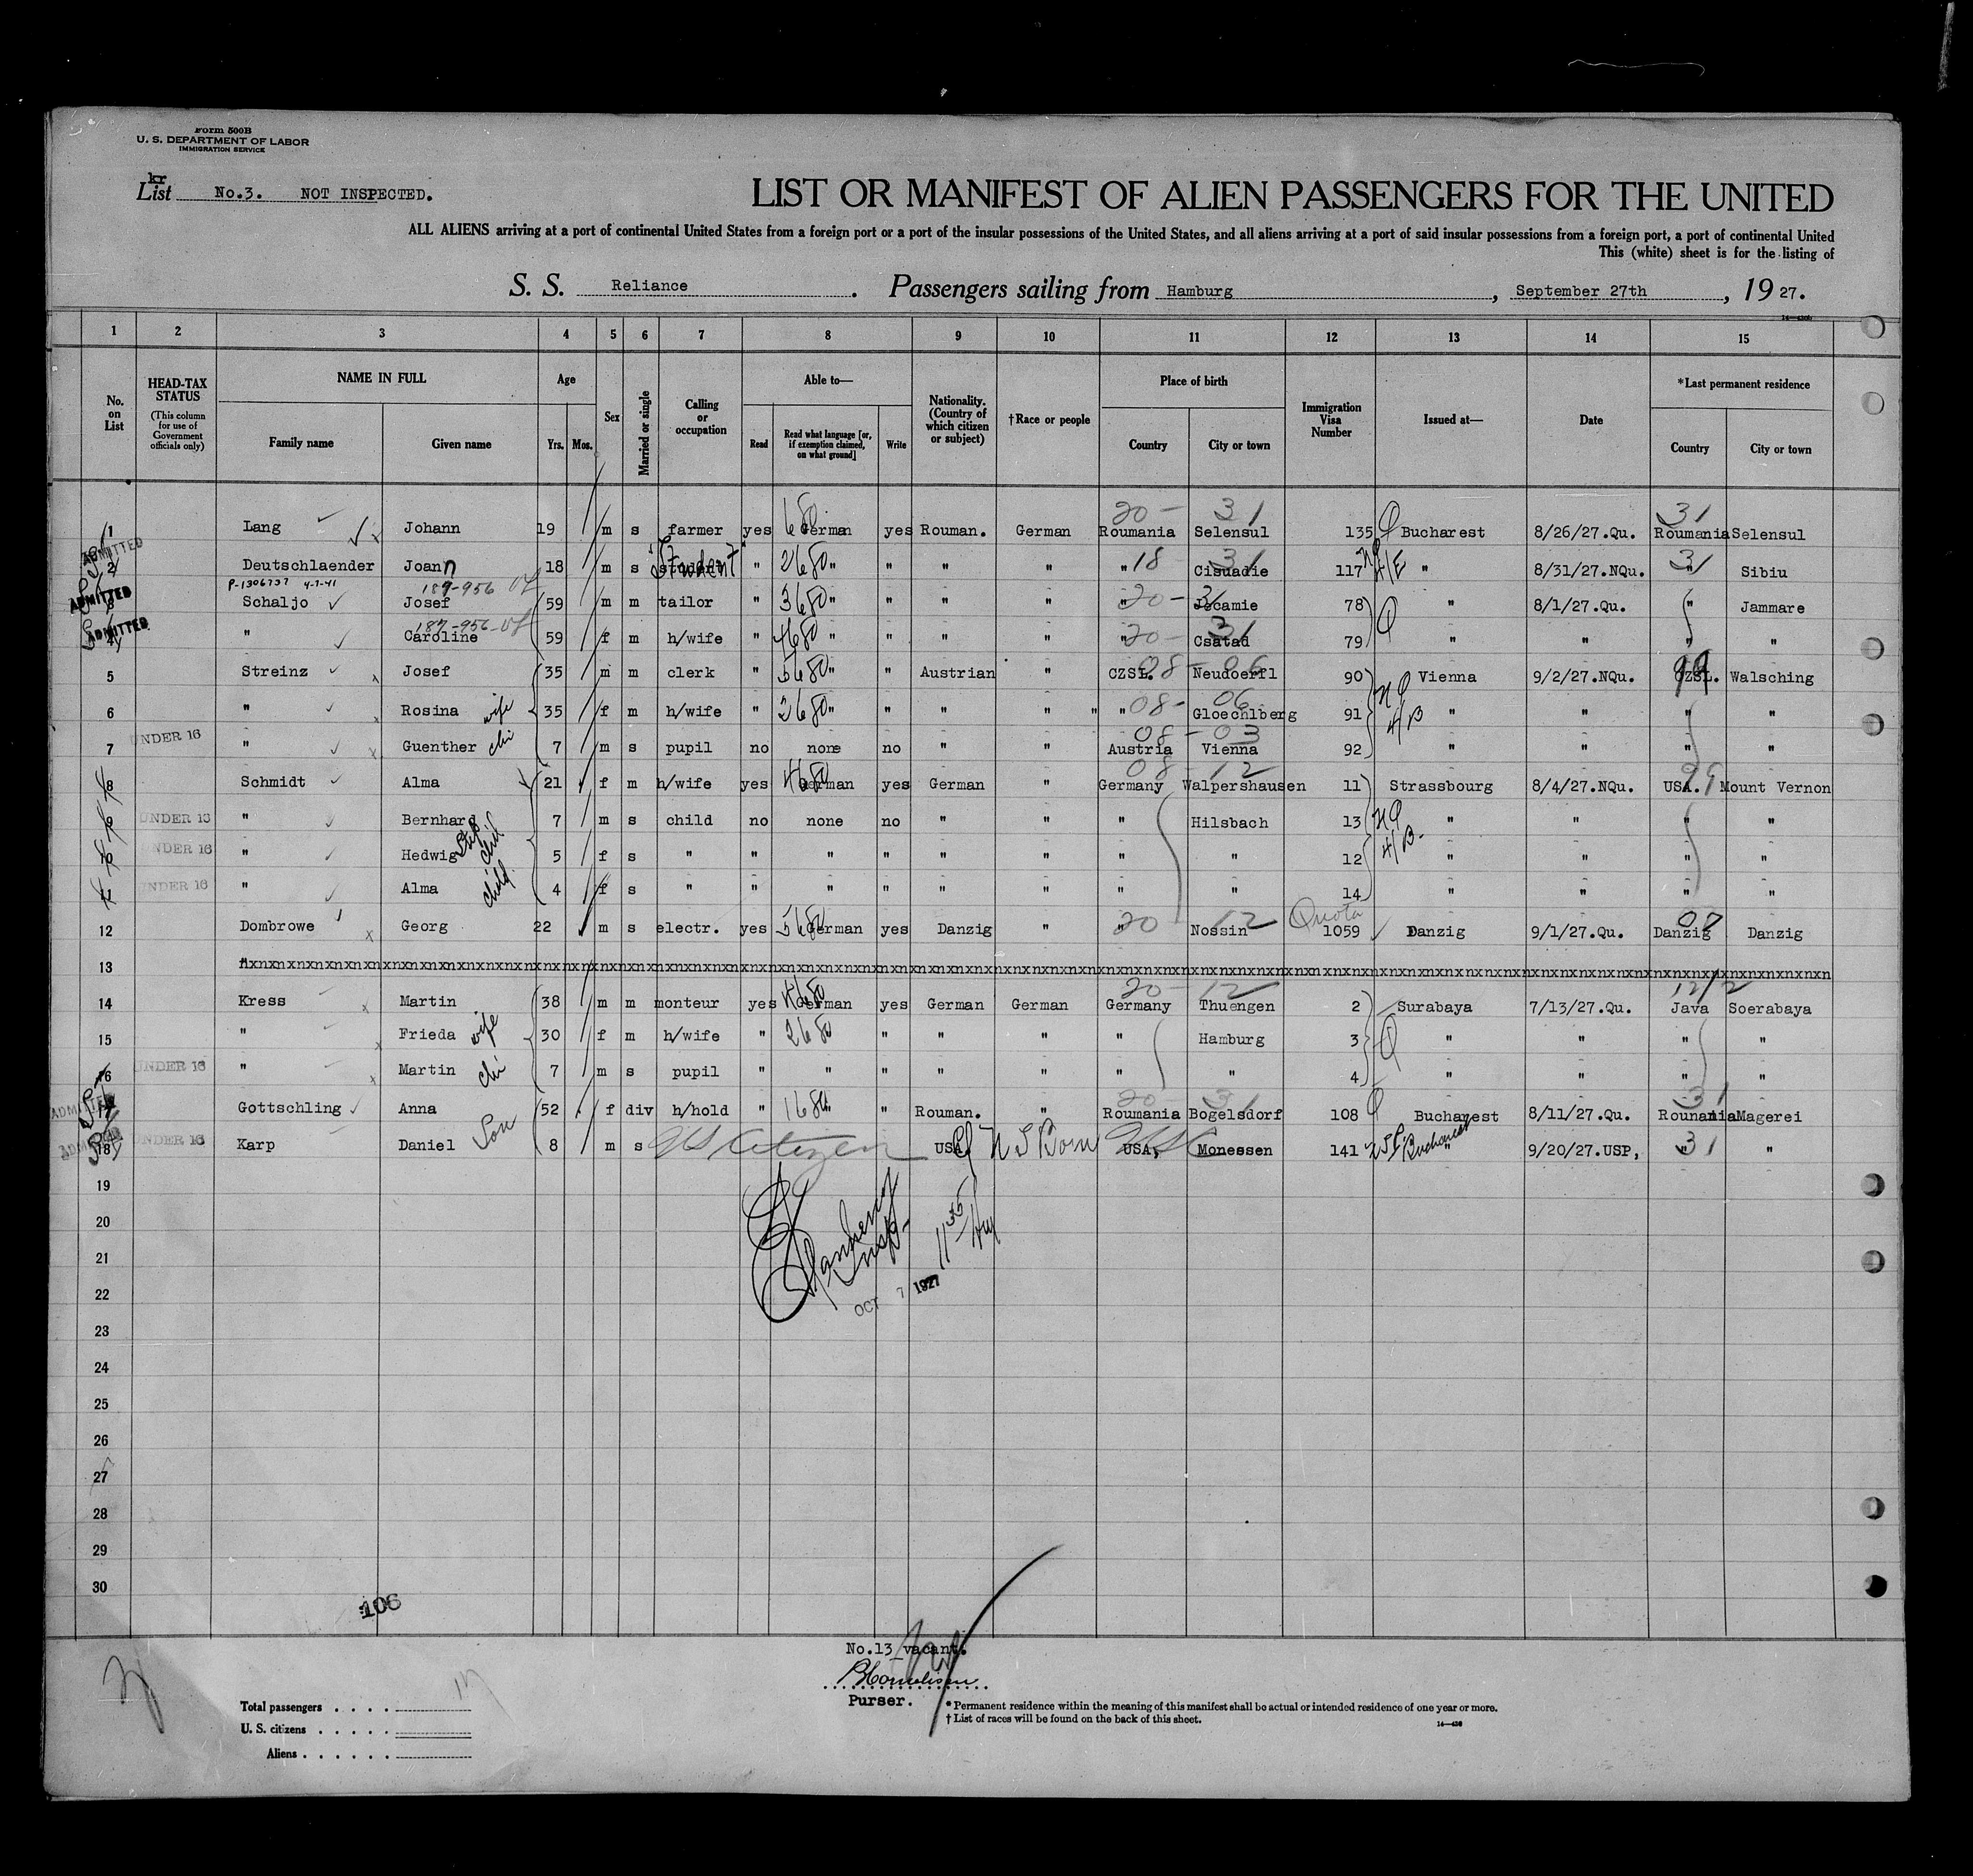 Form 500B
U. S. DEPARTMENT OF LABOR
IMMIGRATION SERVICE
kr
List No.3. NOT INSPECTED.
LIST OR MANIFEST OF ALIEN PASSENGERS FOR THE UNITED
ALL ALIENS arriving at a port of continental United States from a foreign port or a port of the insular possessions of the United States, and all aliens arriving at a port of said insular possessions from a foreign port, a port of continental United
This (white) sheet is for the listing of
S. S. Reliance. Passengers sailing from Hamburg, September 27th, 19 27.
1 2 3 4 5 6 7 8 9 10 11 12 13 14 15
No. on List HEAD-TAX STATUS (This column for use of Government officials only) NAME IN FULL Family name Given name Age Yrs. Mos. Sex Married or single Calling or occupation Able to— Read Read what language [or, if exemption claimed, on what ground] Write Nationality. (Country of which citizen or subject) †Race or people Place of birth Country City or town Immigration Visa Number Issued at— Date *Last permanent residence Country City or town
20- 31 31
1 Lang Johann 19 m s farmer yes German yes Rouman. German Roumania Selensul 135 Q Bucharest 8/26/27.Qu. Roumania Selensul
ADMITTED
2 Deutschlaender Joann 18 m s Student " 2680 " " " " " 18 31 Cisuadie 117 " 8/31/27.NQu. 31 " Sibiu
P-1306737 4-7-41 187-956
ADMITTED 3 Schaljo Josef 59 m m tailor " 3680 " " " " 20-31 Jecamie 78 Q " 8/1/27.Qu. " Jammare
187-956
ADMITTED 4 " Caroline 59 f m h/wife " 4680 " " " " " 20- 31 Csatad 79 " " " "
5 Streinz Josef 35 m m clerk " 5680 " " Austrian " CZSL. 08-06 Neudoerfl 90 Vienna 9/2/27.NQu. 99 CZSL. Walsching
6 " Rosina wife 35 f m h/wife " 2680 " " " " " " 08-06 Gloechlberg 91 NQ 4/B " " " "
7 UNDER 16 " Guenther chi 7 m s pupil no none no " " 08-03 Austria Vienna 92 " " " "
8 Schmidt Alma 21 f m h/wife yes 4680 German yes German " 08-12 Germany Walpershausen 11 Strassbourg 8/4/27.NQu. 99 USA. Mount Vernon
9 UNDER 16 " Bernhard 7 m s child no none no " " " Hilsbach 13 NQ 4/B. " " " "
10 UNDER 16 " Hedwig 5 f s " " " " " " " " 12 " " " "
11 UNDER 16 " Alma child 4 f s " " " " " " " " 14 " " " "
12 Dombrowe Georg 22 m s electr. yes 5680 German yes Danzig " 20 12 " Nossin Quota 1059 Danzig 9/1/27.Qu. 07 Danzig Danzig
13
14 Kress Martin 38 m m monteur yes 1680 German yes German German 20-12 Germany Thuengen 2 Surabaya 7/13/27.Qu. Java Soerabaya
15 " Frieda wife 30 f m h/wife " 2680 " " " " Hamburg 3 Q " " " "
16 UNDER 16 " Martin chi 7 m s pupil " " " " " " " 4 " " " "
ADMITTED 17 Gottschling Anna 52 f div h/hold " 1680 " " Rouman. " 20-31 Roumania Bogelsdorf 108 Q Bucharest 8/11/27.Qu. 31 Roumania Magerei
ADMITTED 18 UNDER 16 Karp Daniel Son 8 m s US Citizen USA. U S Born USA, Monessen 141 Bucharest " 9/20/27.USP, 31 " "
19
20
21
OCT 7 1927
22
23
24
25
26
27
28
29
30
106
No.13 vacant.
Purser.
Total passengers
U. S. citizens
Aliens
*Permanent residence within the meaning of this manifest shall be actual or intended residence of one year or more.
†List of races will be found on the back of this sheet.